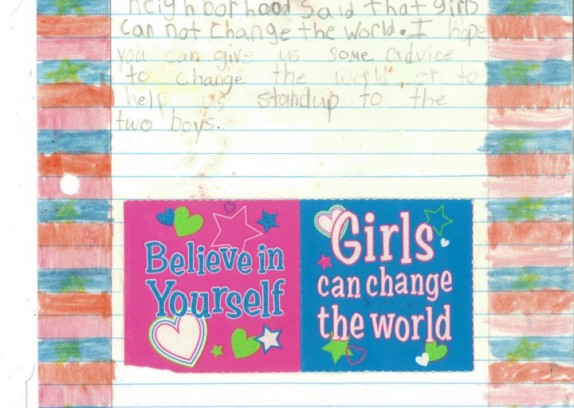 neighborhood said that girls
can not change the world. I hope
you can give us some advice
to change the world or to
help us standup to the
two boys.
Believe in
Yourself
Girls
can change
the world